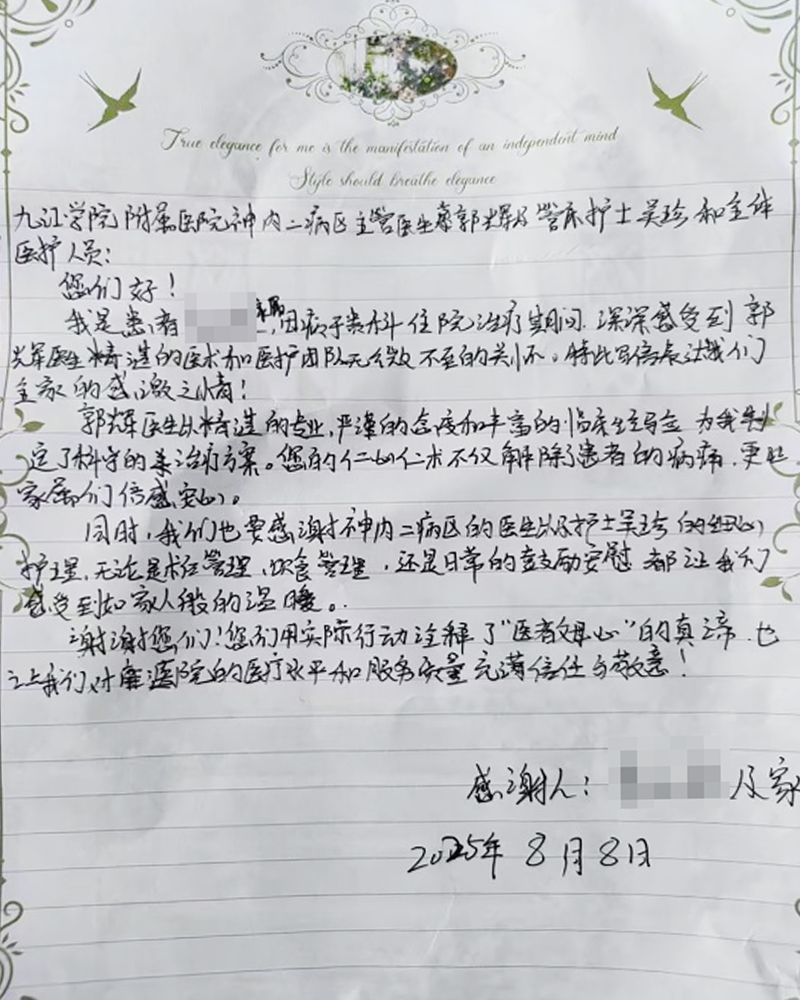 True elegance for me is the manifestation of an independent mind
Style should breathe elegance
九江学院附属医院神内二病区主管医生郭光辉及管床护士吴珍和全体
医护人员:
您们好!
我是患者家属,因病于贵科住院治疗期间.深深感受到郭
光辉医生精湛的医术和医护团队无微不至的关怀。特此写信表达我们
全家的感激之情!
郭辉医生以精湛的专业,严谨的态度和丰富的临床经验 为我制
定了科学的治疗方案。您的仁心仁术不仅解除了患者的病痛.更让
家属们倍感安心。
同时,我们也要感谢神内二病区的医生以及护士吴珍的细心
护理,无论是术后管理、饮食管理,还是日常的鼓励安慰 都让我们
感受到如家人般的温暖。
谢谢您们!您们用实际行动注释了"医者父母心"的真谛.也
让我们对医院的医疗水平和服务质量充满信任与敬意!
感谢人: 及家
2025年8月8日